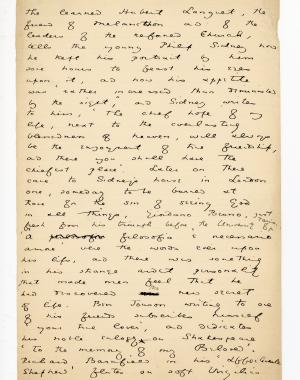 the learned Hubert Languet, the
friend of Melancthon and of the
leaders of the reformed Church,
tells the young Philip Sidney how
he kept his portrait by him
some hours to feast his eyes
upon it, and how his appetite
was "rather increased than diminished
by the sight," and Sidney writes
to him, "the chief hope of my
life, next to the everlasting
blessedness of heaven, will always
be the enjoyment of true friendship,
and there you shall have the
chiefest place." Later on there
came to Sidney's house in London
one, someday to be burned at
Rome for the sin of seeing God
in all things, Giordano Bruno, just
fresh from his triumph before the University of
A filosofia è necessario
amore were the words ever upon
his life, and there was something
in his strange ardent personality
that made men feel that he
had discovered new secret
of life. Ben Jonson writing to one
of his friends subscribes himself
"your true lover," and dedicates
his noble eulogy on Shakespeare
"to the memory of my Beloved."
Richard Barnfield in his "Affectionate
Shepherd" flutes on soft Virgilian